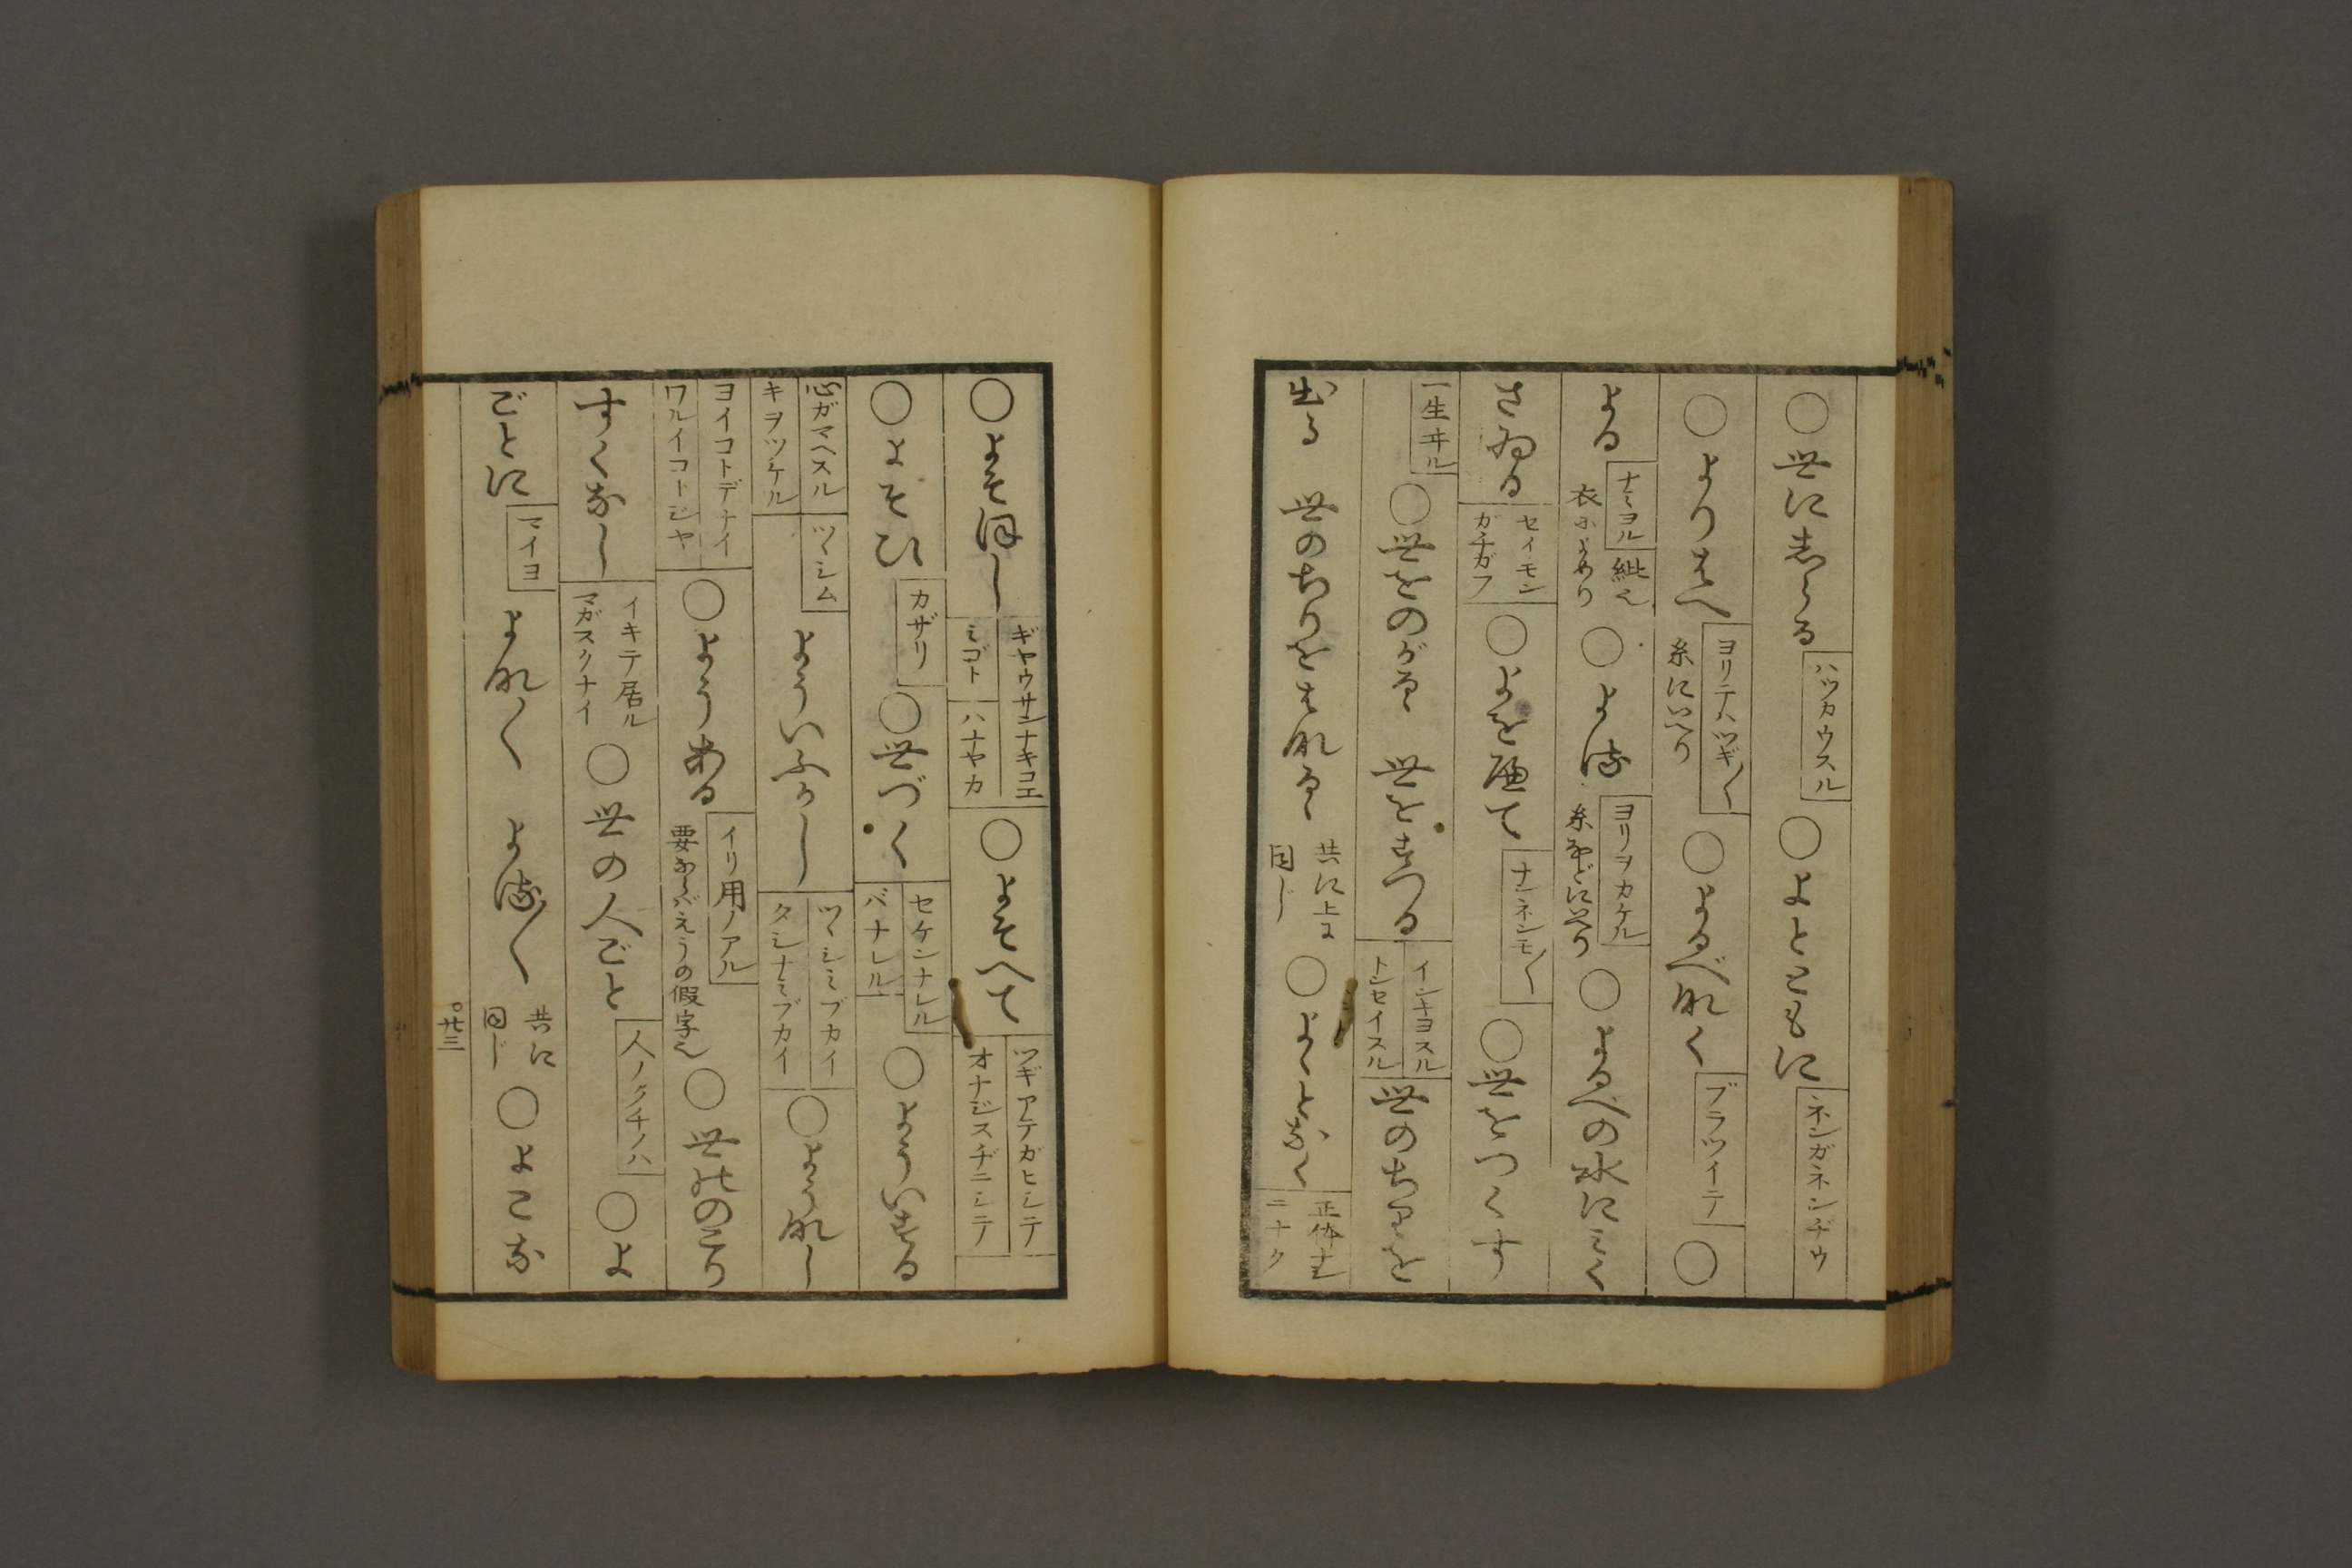 ○世に志らる ハツカウスル ○よとともに ネンガネンヂウ
○よりはへ ヨリテハツギ〱 糸にいへり ○よるべなく ブラツイテ ○
よる ナミヨル 紕也 衣によめり ○よる ヨリヲカケル 糸などにいへり ○よるべの水にミく
さゐる セイモンガチガフ ○よを歴て ナンネンモ〱 ○世をつくす
一生ヰル ○世をのがる 世をすつる インキヨスル トンセイスル 世のちりを
出る 世のちりをはなる 共に上に同じ ○よゝとなく 正体ナシニナク
○よそほし ギヤウサンナキコエ ミゴト ハナヤカ ○よそへて ツギアテガヒシテ オナジスヂニシテ
○よそひ カザリ ○世づく セケンナレル バナレル ○よういする
心ガマヘスル キヲツケル ツヽシム よういふかし ツヽシミブカイ タシナミブカイ ○ようなし
ヨイコトデナイ ワルイコトジヤ ○ようある イリ用ノアル 要ならバえうの假字也 ○世のゝこり
すくなし イキテ居ルマガスクナイ ○世の人ごと 人ノクチノハ ○よ
ごとに マイヨ よな〱 よる〱 共に同じ ○よこな
廿三